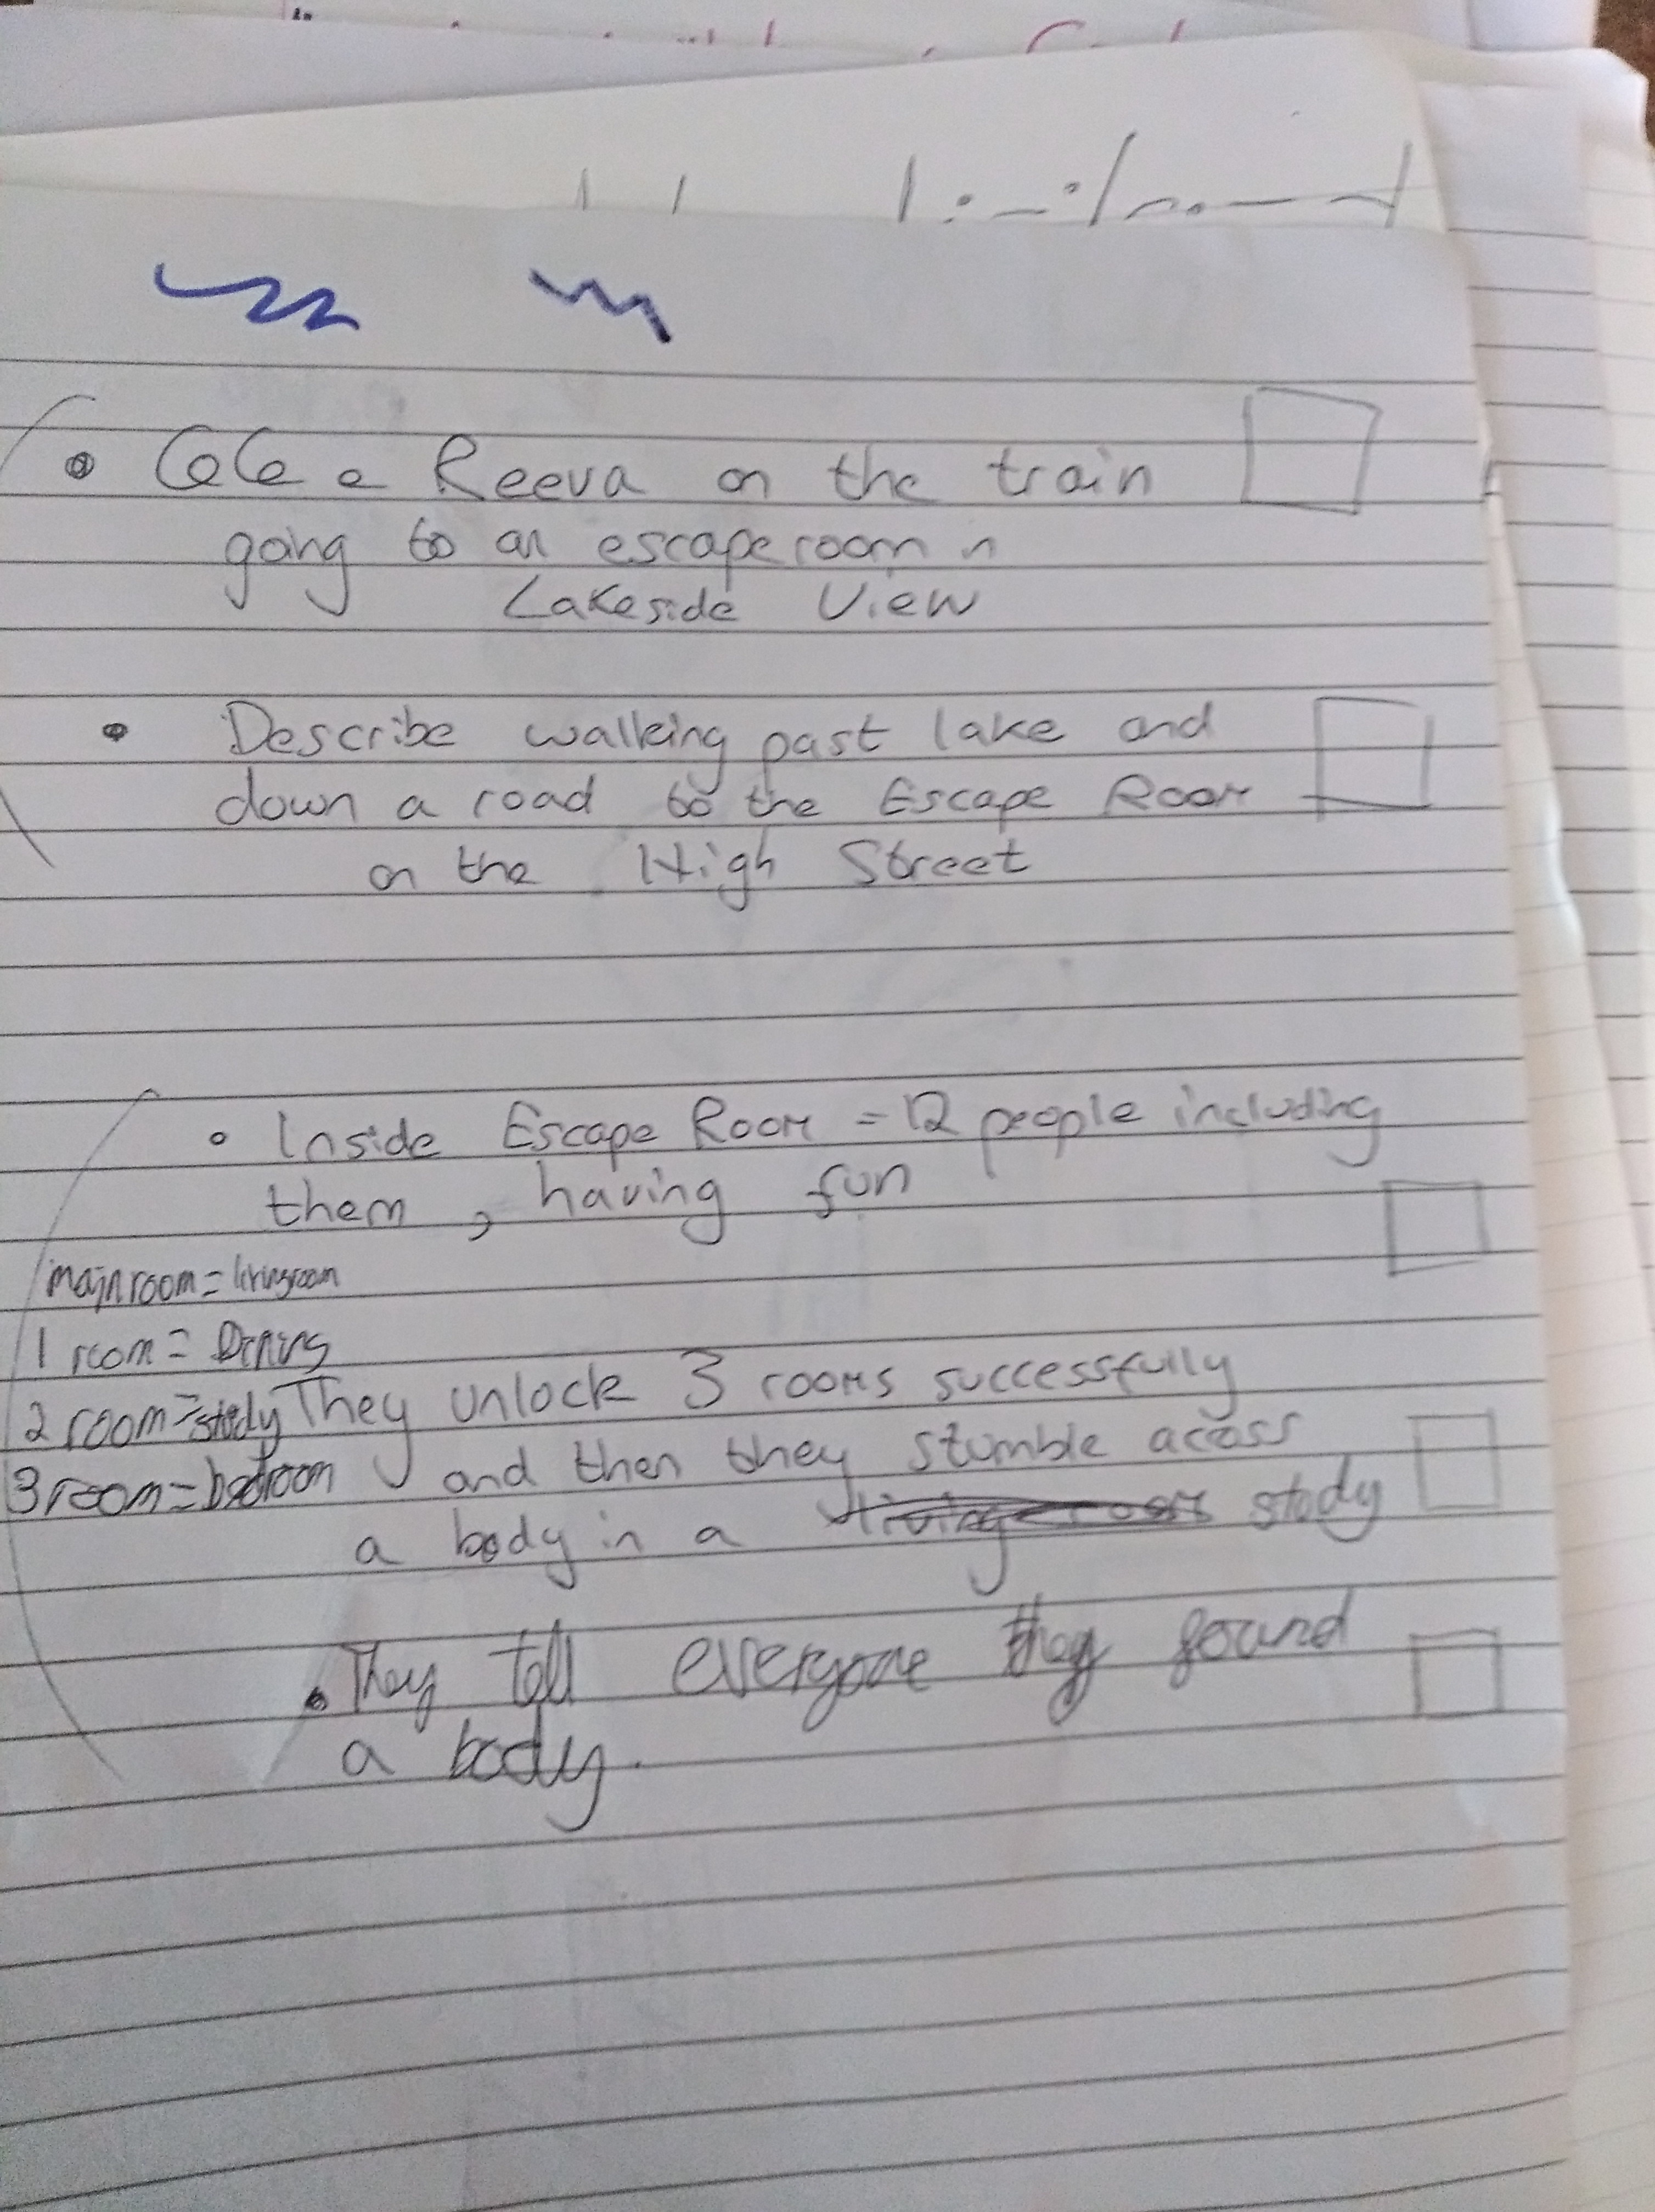 • CeCe e Reeva on the train
going to an escape room n
Lakeside View
• Describe walking past lake and
down a road to the Escape Room
on the High Street
• Inside Escape Room = 12 people including
them, having fun
main room = livingroom
1 room = Dining
2 room = study
3 room = bedroom
They unlock 3 rooms successfully
and then they stumble acoss
a body in a living room study
• They tell everyone they found
a body.